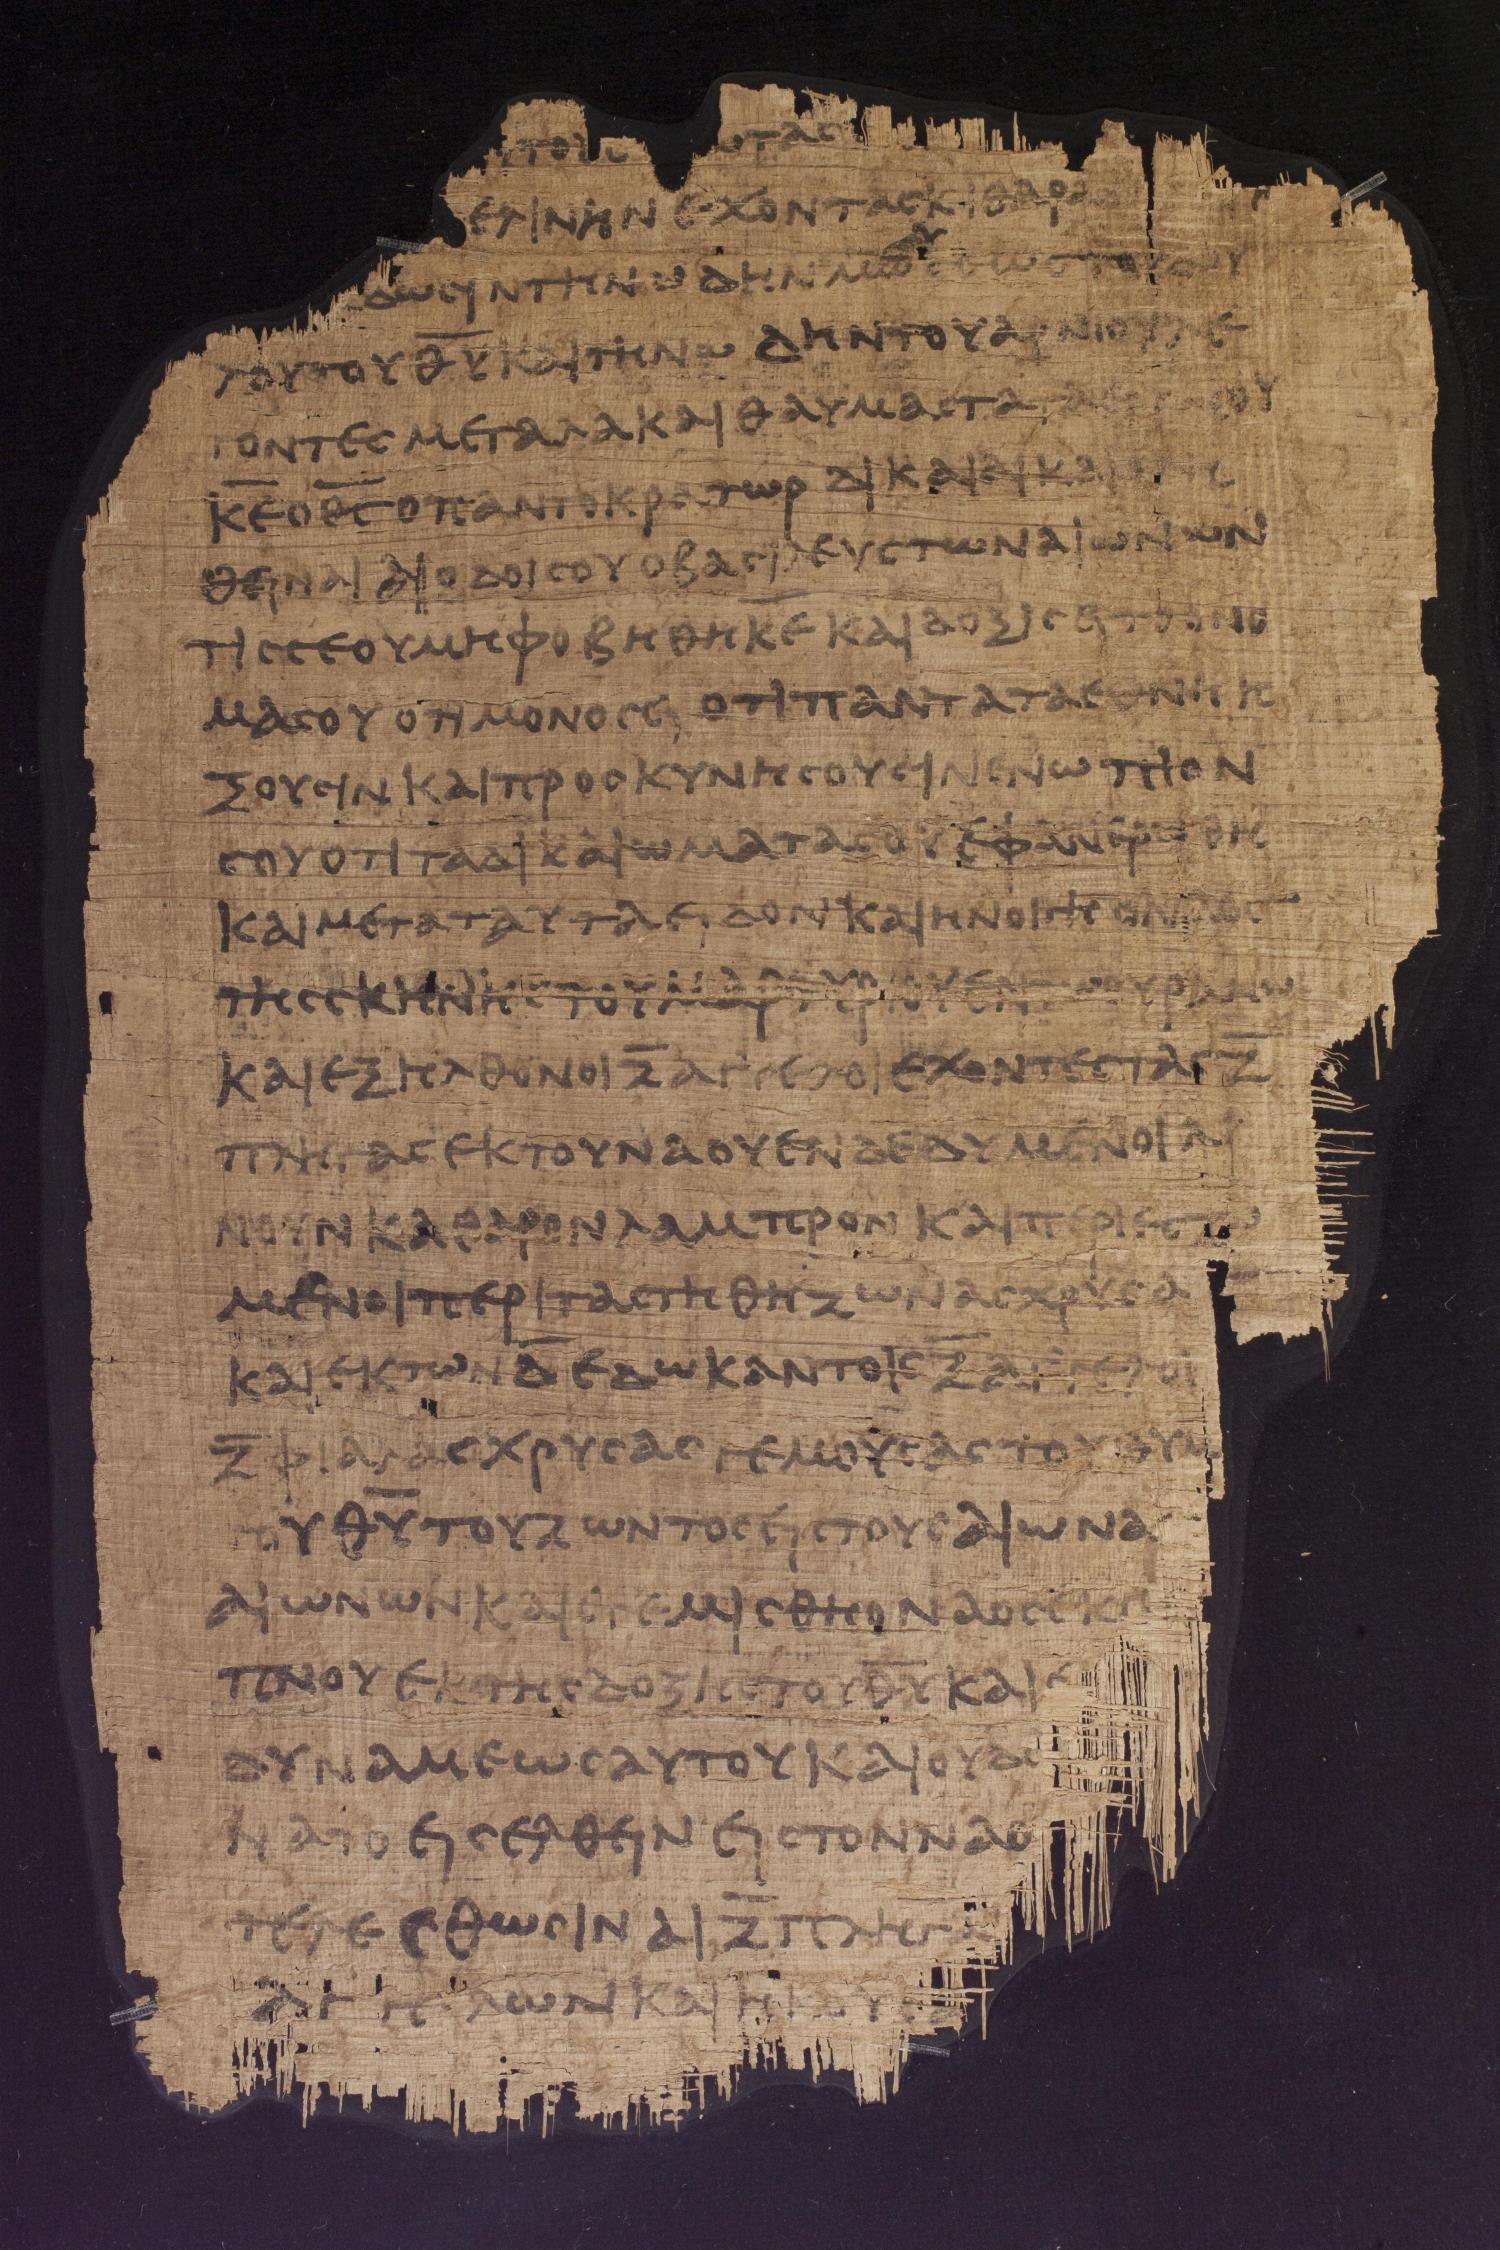 εστωτας
ελινην εχοντας κιθαρας
αδωσιν την ωδην μωυσεως του δουλου
του του θ̅υ̅ και την ωδην του αρνιου λε
γοντες μεγαλα και θαυμαστα τα εργα σου
κ̅ε̅ ο θ̅ς̅ ο παντοκρατωρ δικαιαι και αλη
θειναι αι οδοι σου ο βασιλευς των αιωνων
τις σε ου μη φοβηθη κ̅ε̅ και δοξισει το ονο
μα σου οτι μονος ει οτι παντα τα εθνη η
ξουσιν και προσκυνησουσιν ενωπιον
σου οτι τα δικαιωματα σου εφανερωθη
και μετα ταυτα ειδον και ηνοιγη ο ναος
της σκηνης του μαρτυριου εν τω ουρανω
και εξηλθον οι ζ̅ αγγελοι εχοντες τας ζ̅
πληγας εκ του ναου ενδεδυμενοι λι
νουν καθαρον λαμπρον και περιεζω
μενοι περι τα στηθη ζωνας χρυσας
και εκ των δ̅ εδωκαν τοις ζ̅ αγγελοις
ζ̅ φιαλας χρυσας γεμουσας του θυμ
ου θ̅υ̅ του ζωντος εις τους αιωνας
αιωνων και εγεμισθη ο ναος εκ
πνου εκ της δοξης του θ̅υ̅ και εκ
δυναμεως αυτου και ουδε
νατο εισελθειν εις τον ναο
τελεσθωσιν αι ζ̅ πληγαι
αγγελων και ηκουσα